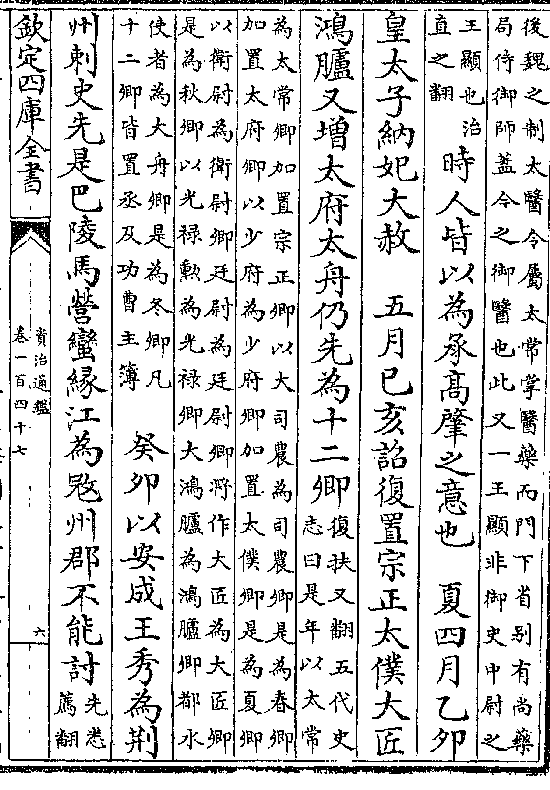 後魏之制太醫令屬太常掌醫藥而門下省别有尚藥
局侍御師蓋今之御醫也此又一王顯非御史中尉之
王顯也治
直之翻
時人皆以為承髙肇之意也　夏四月乙卯
皇太子納妃大赦　五月己亥詔復置宗正太僕大匠
鴻臚又增太府太舟仍先為十二卿
復扶又翻五代史
志曰是年以太常
為太常卿加置宗正卿以大司農為司農卿是為春卿
加置太府卿以少府為少府卿加置太僕卿是為夏卿
以衛尉為衛尉卿廷尉為廷尉卿將作大匠為大匠卿
是為秋卿以光禄勲為光禄卿大鴻臚為鴻臚卿都水
使者為大舟卿是為冬卿凡
十二卿皆置丞及功曹主簿
癸卯以安成王秀為荆
州刺史先是巴陵馬營蠻緣江為宼州郡不能討
先悉
薦翻
欽定四庫全書
資治通鑑
卷一百四十七
六